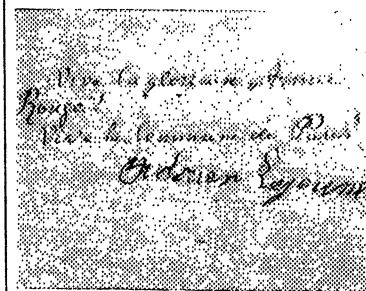 Vive la glorieuse Armée
Rouge !
Vive la Commune de Paris
Adrien Lejeune